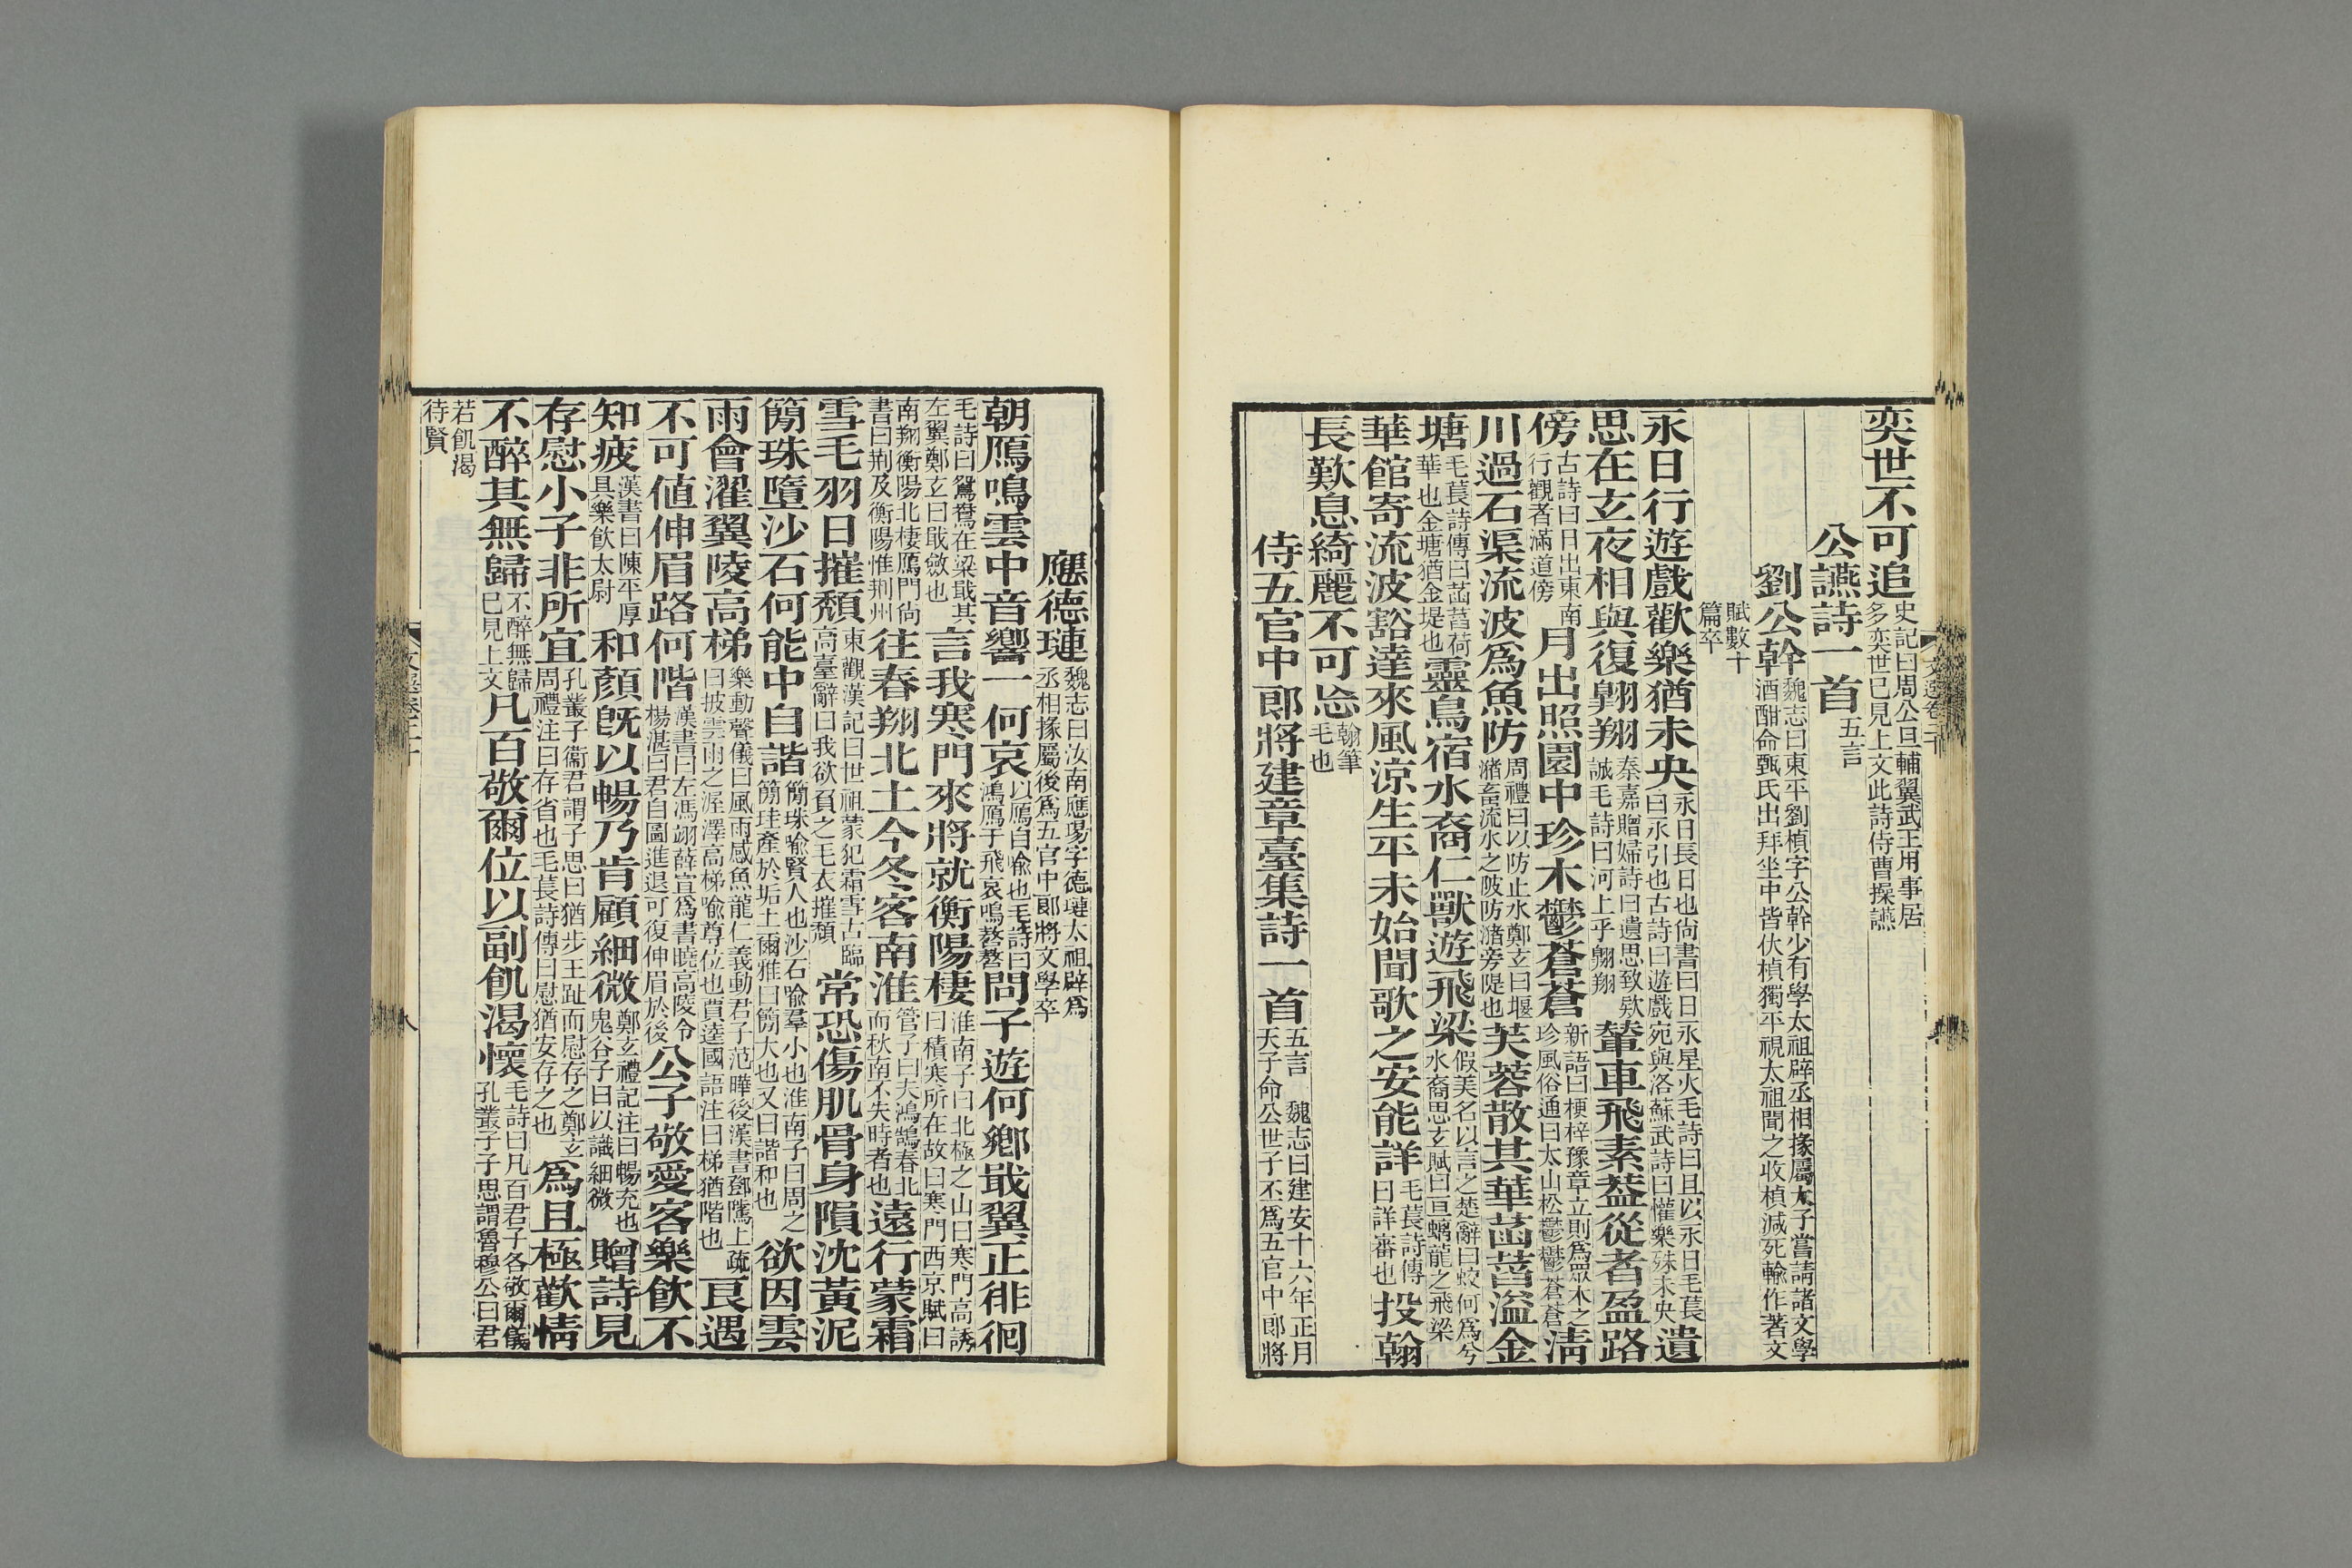 奕世不可追史記曰周公旦輔翼武王用事居多奕世已見上文此詩侍曹操讌
公讌詩一首五言
劉公幹魏志曰東平劉楨字公幹少有學太祖辟丞相掾屬太子嘗請諸文學酒酣命甄氏出拜坐中皆伏楨獨平視太祖聞之收楨減死輸作著文
賦數十篇卒
永日行遊戲歡樂猶未央永日長日也尚書曰日永星火毛詩曰且以永日毛萇曰永引也古詩曰遊戲宛與洛蘇武詩曰懽樂殊未央遺
思在玄夜相與復翱翔秦嘉贈婦詩曰遺思致欵誠毛詩曰河上乎翱翔輦車飛素葢從者盈路
傍古詩曰日出東南行觀者滿道傍月出照園中珍木鬱蒼蒼新語曰楩梓豫章立則爲眾木之珍風俗通曰太山松鬱鬱蒼蒼清
川過石渠流波爲魚防周禮曰以防止水鄭玄曰堰瀦畜流水之陂防瀦旁隄也芙蓉散其華菡萏溢金
塘毛萇詩傳曰菡萏荷華也金塘猶金堤也靈鳥宿水裔仁獸遊飛梁假美名以言之楚辭曰蛟何爲兮水裔思玄賦曰亘螭龍之飛梁
華館寄流波豁達來風涼生平未始聞歌之安能詳毛萇詩傳曰詳審也投翰
長歎息綺麗不可忘翰筆毛也
侍五官中郎將建章臺集詩一首五言 魏志曰建安十六年正月天子命公世子丕爲五官中郎將
應德璉魏志曰汝南應瑒字德璉太祖辟爲丞相掾屬後爲五官中郎將文學卒
朝鴈鳴雲中音響一何哀以鴈自喻也毛詩曰鴻鴈于飛哀鳴嗸嗸問子遊何鄉戢翼正徘徊
毛詩曰鴛鴦在梁戢其左翼鄭玄曰戢斂也言我寒門來將就衡陽棲淮南子曰北極之山曰寒門高誘曰積寒所在故曰寒門西京賦曰
南翔衡陽北棲鴈門尚書曰荆及衡陽惟荆州往春翔北土今冬客南淮管子曰夫鴻鵠春北而秋南不失時者也遠行蒙霜
雪毛羽日摧頹東觀漢記曰世祖蒙犯霜雪古臨高臺辭曰我欲負之毛衣摧頹常恐傷肌骨身隕沈黃泥
簡珠墮沙石何能中自諧簡珠喻賢人也沙石喻羣小也淮南子曰周之簡珪產於垢土爾雅曰簡大也又曰諧和也欲因雲
雨會濯翼陵高梯樂動聲儀曰風雨感魚龍仁義動君子范曄後漢書鄧隲上疏曰披雲雨之渥澤高梯喻尊位也賈逵國語注曰梯猶階也良遇
不可値伸眉路何階漢書曰左馮翊薛宣爲書曉高陵令楊湛曰君自圖進退可復伸眉於後公子敬愛客樂飲不
知疲漢書曰陳平厚具樂飲太尉和顏旣以暢乃肯顧細微鄭玄禮記注曰暢充也鬼谷子曰以識細微贈詩見
存慰小子非所宜孔叢子衞君謂子思曰猶步玉趾而慰存之鄭玄周禮注曰存省也毛萇詩傳曰慰猶安存之也爲且極歡情
不醉其無歸不醉無歸已見上文凡百敬爾位以副飢渴懷毛詩曰凡百君子各敬爾儀孔叢子子思謂魯穆公曰君
若飢渴待賢
文選卷二十
八